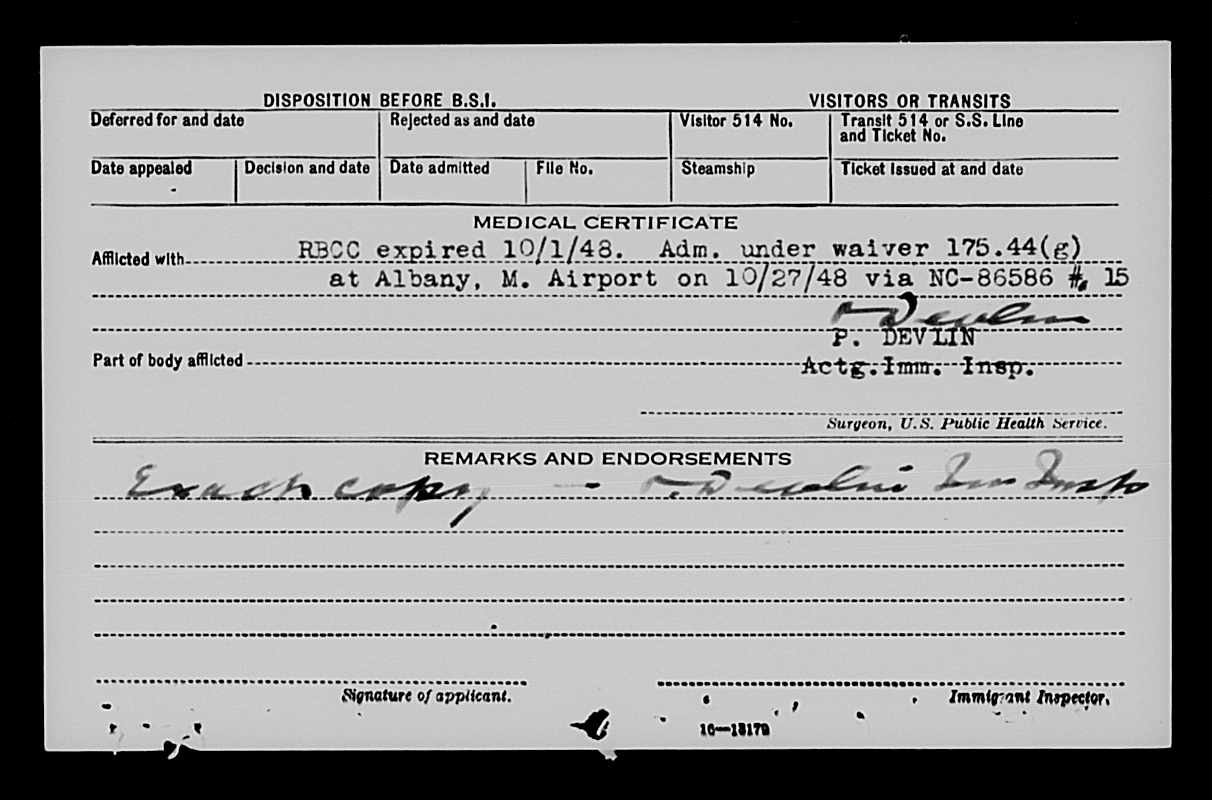 DISPOSITION BEFORE B.S.I. VISITORS OR TRANSITS
Deferred for and date Rejected as and date Visitor 514 No. Transit 514 or S.S. Line
and Ticket No.
Date appealed Decision and date Date admitted File No. Steamship Ticket issued at and date
MEDICAL CERTIFICATE
Afflicted with RBCC expired 10/1/48. Adm. under waiver 175.44(g)
at Albany, M. Airport on 10/27/48 via NC-86586 #. 15
P. Devlin
P. DEVLIN
Part of body afflicted Actg.Imm. Insp.
Surgeon, U.S. Public Health Service.
REMARKS AND ENDORSEMENTS
Exact copy — P. Devlin Imm Insp
Signature of applicant. Immigrant Inspector.
16—13179